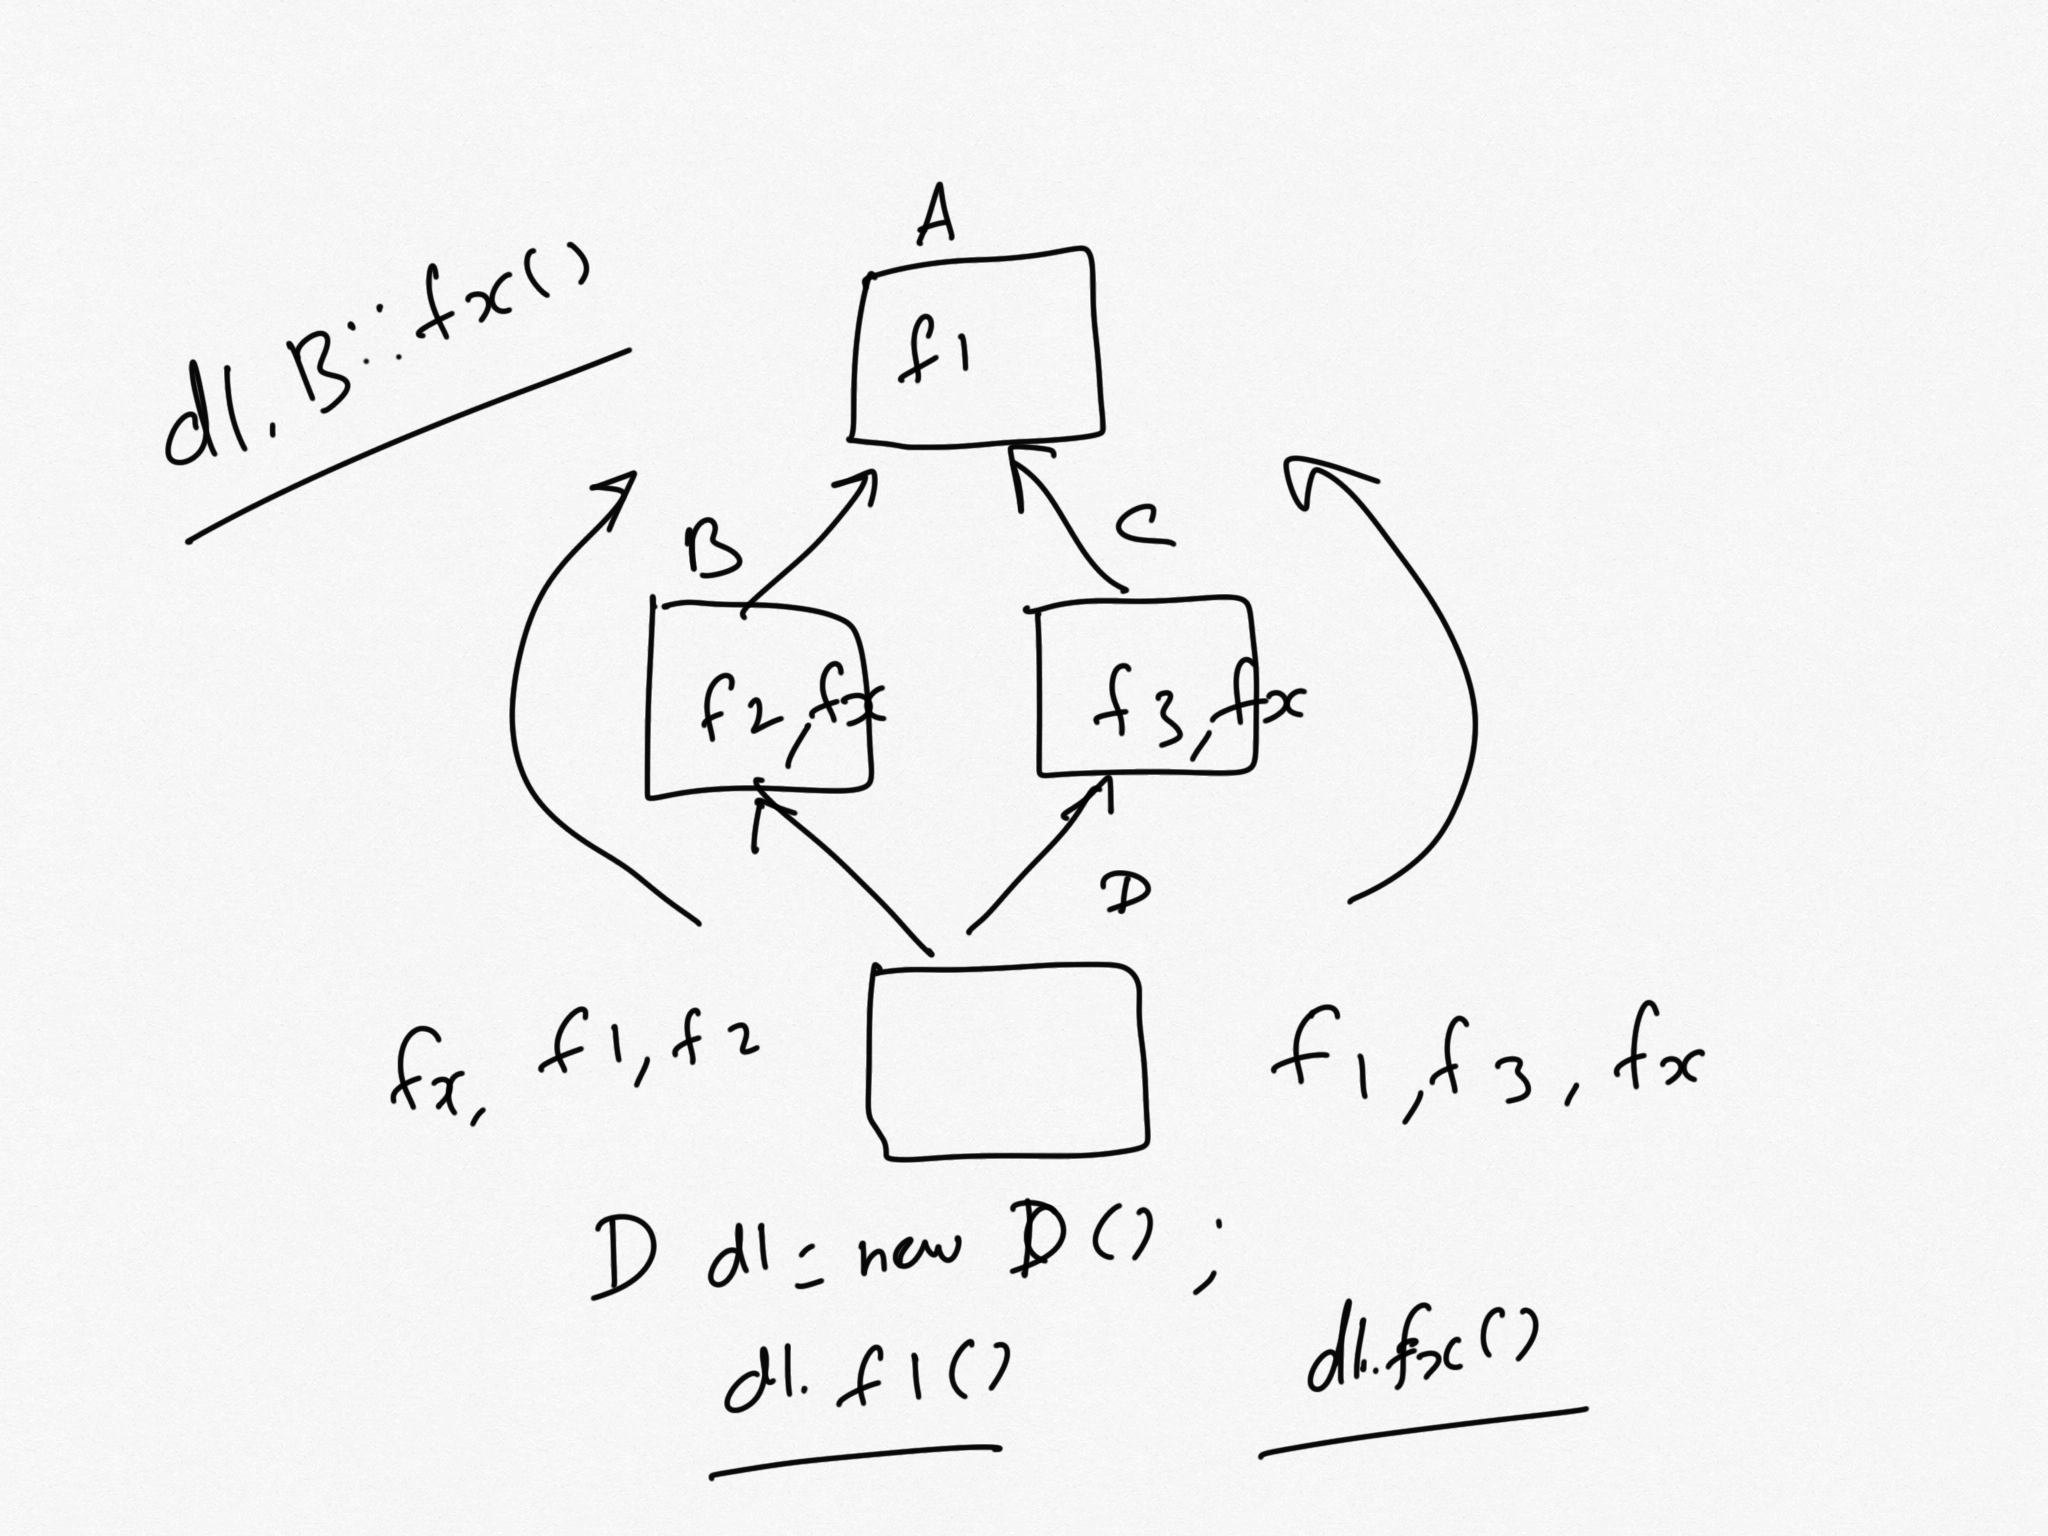 A
d1.B::fx()
f1
B
C
f2,fx
f3,fx
D
fx, f1,f2
f1,f3,fx
D d1=new D();
d1.f1()
d1.fx()